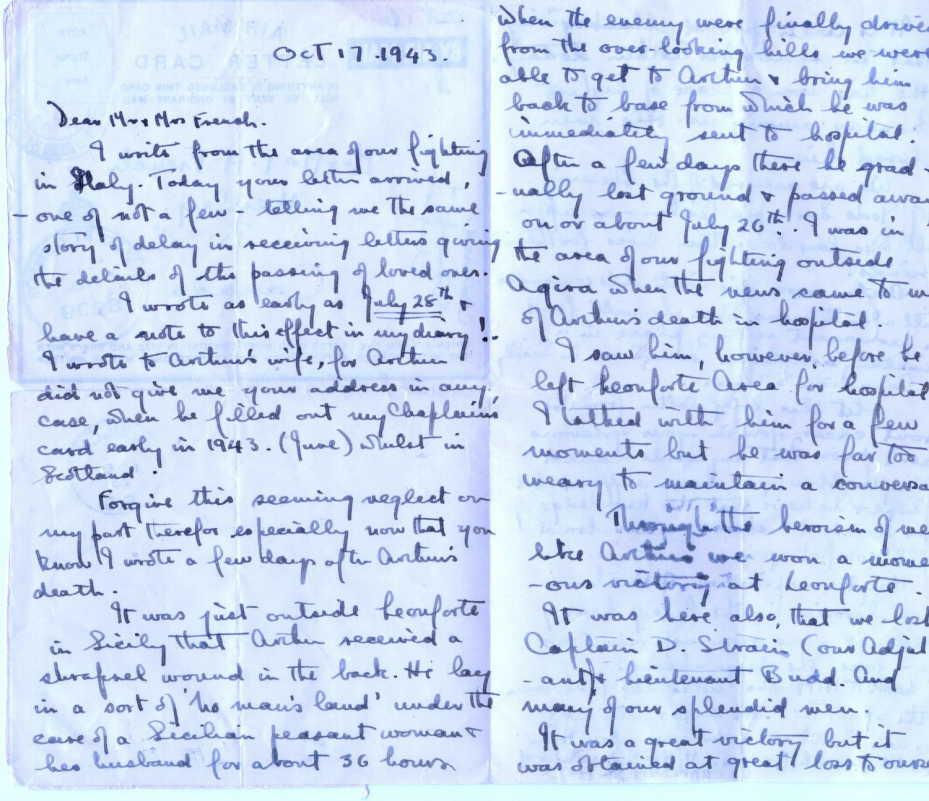 AIR MAIL
LETTER CARD
OCT 17. 1943.
Dear Mr & Mrs French.
I write from the area of our fighting
in Italy. Today your letter arrived,
- one of not a few - telling me the same
story of delay in receiving letters giving
the details of the passing of loved ones.
I wrote as early as July 28th &
have a note to this effect in my diary!
I wrote to Arthur's wife, for Arthur
did not give me your address in any
case, when he filled out my Chaplain's
card early in 1943. (June) whilst in
Scotland.
Forgive this seeming neglect on
my part therefor especially now that you
know I wrote a few days after Arthur's
death.
It was just outside Leonforte
in Sicily that Arthur received a
shrapnel wound in the back. He lay
in a sort of 'no man's land' under the
care of a Sicilian peasant woman &
her husband for about 36 hours
When the enemy were finally driven
from the over-looking hills we were
able to get to Arthur & bring him
back to base from which he was
immediately sent to hospital.
After a few days there he grad-
-ually lost ground & passed away
on or about July 26th. I was in
the area of our fighting outside
Agira when the news came to m
of Arthur's death in hospital.
I saw him, however, before he
left Leonforte Area for hospital
I talked with him for a few
moments but he was far too
weary to maintain a conversa
Through the heroism of me
like Arthur we won a mome
-ous victory at Leonforte.
It was here also, that we lost
Captain D. Strain (our Adjut
-ant) & Lieutenant Budd. And
many of our splendid men.
It was a great victory but it
was obtained at great loss to ourse